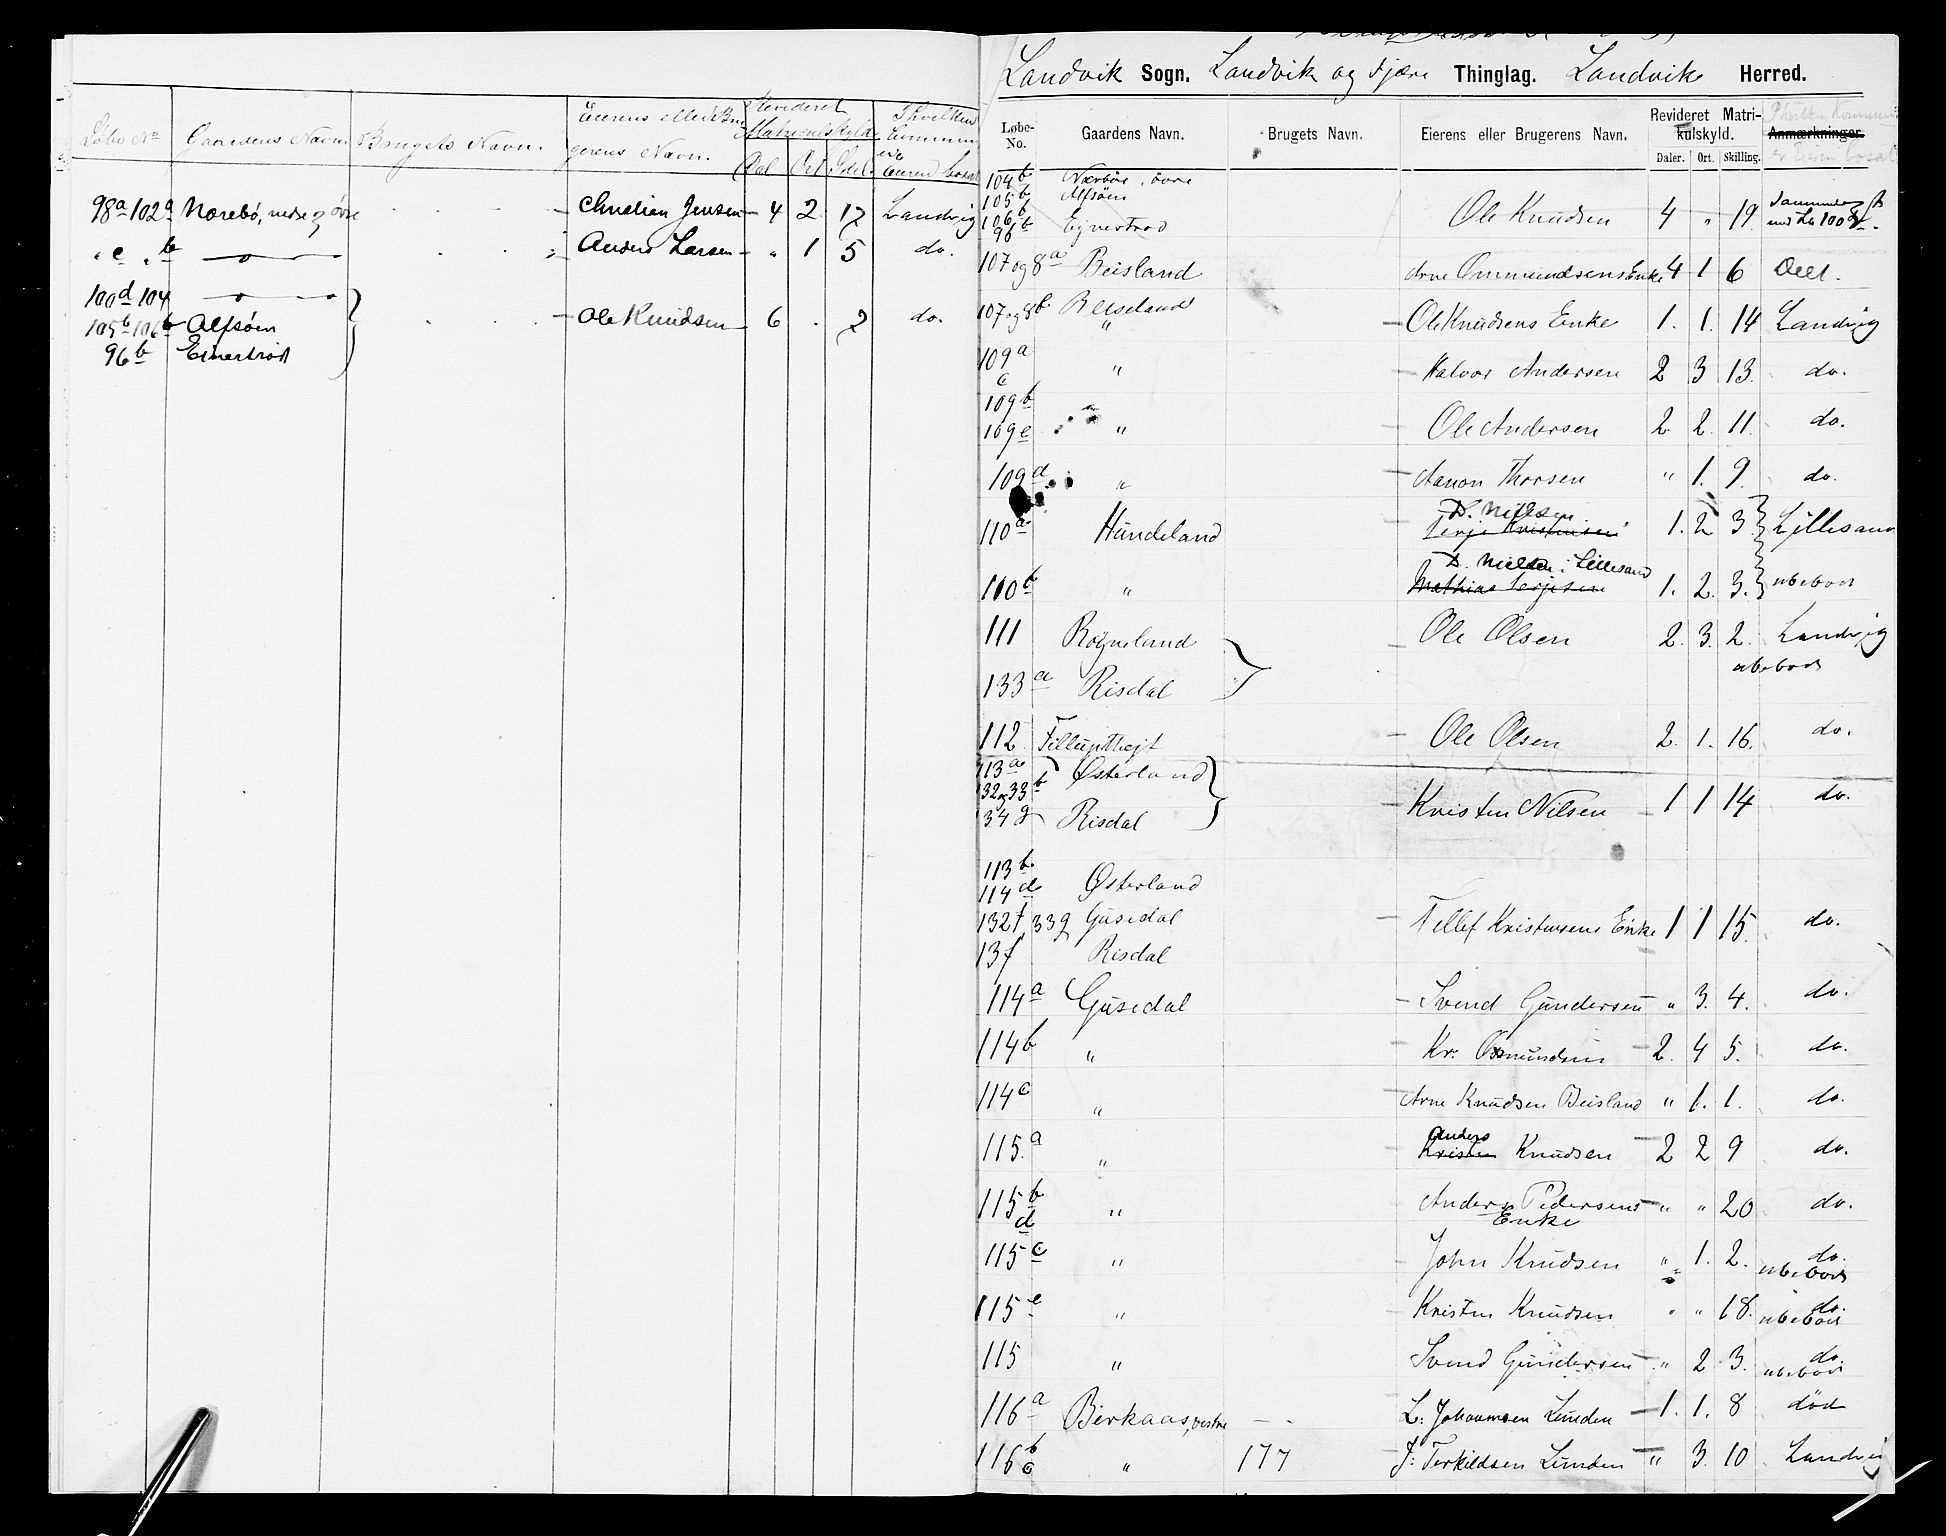 Løbe No Gaardens Navn. Brugets Navn. Eierens eller Bru gerens Navn. Revideret Matrikulskyld Dal Ort Skil. I hvilken Commune er Eieren bosat
98a 102a Norebö, nedre og övre Christian Jensen 4 2 17 Landvig
" c " b — " — Anders Larsen " 1 5 do.
100d 104 — " —
105b 106b Alfsöen Ole Knudsen 6 . 2 do.
96b Einertröd
Landvik Sogn. Landvik og Fjære Thinglag. Landviks Herred.
Løbe-No. Gaardens Navn. Brugets Navn. Eierens eller Brugerens Navn. Revideret Matrikulskyld. Daler. Ort. Skilling. Anmærkninger.
104b Nærböe, övre
105b Alfsöen
106b 96b Eyvertrod Ole Knudsen 4 " 19
107 og 8a Beisland Arne Ommundsens Enke 4 1 6
107 og 8b Beiseland " Ole Knudsens Enke 1. 1. 14 Landvig
109a c " Halvor Andersen 2 3 13. do.
109b
109e " Ole Andersen 2. 2. 11. do.
109d " Aanon Thorsen " 1. 9. do.
D. Nielsen
110a Hündeland Terje Kristensen 1. 2 3. Lillesand
D. Nielsen i Lillesand
110b " Mathias Terjesen 1. 2. 3. ubeboet
111 Rogneland Ole Olsen 2. 3. 2. Landvig
ubeboet
133a Risdal
112. Ole Olsen 2. 1. 16. do.
113a Østerland
132 og 33b Kristen Nilsen 1 1 14 do.
134g Risdal
113b
114d Østerland
132f, 33g Gusedal Tellef Kristensens Enke 1 1 15 do.
13f Risdal
114a Gusedal Svend Gundersen " 3. 4. do.
114b " Kr. Osmundsen 2. 4 5. do.
114c " Arne Knudsen Beisland " 1. 1. do.
Anders
115.a " Kristen Knudsen 2 2 9 do.
115b d " Anders Pedersens Enke " " 20 do.
115c " John Knudsen " 1. 2. do. ubeboet
115e " Kristen Knudsen " " 18. do. ubeboet
115 " Svend Gundersen " 2 3. do. ubeboet
116a Birkaas, vestre L. Johannsen Lunden 1. 1. 8 død
116b c " 177 J. Terkildsen Lunden " 3. 10 Landvig